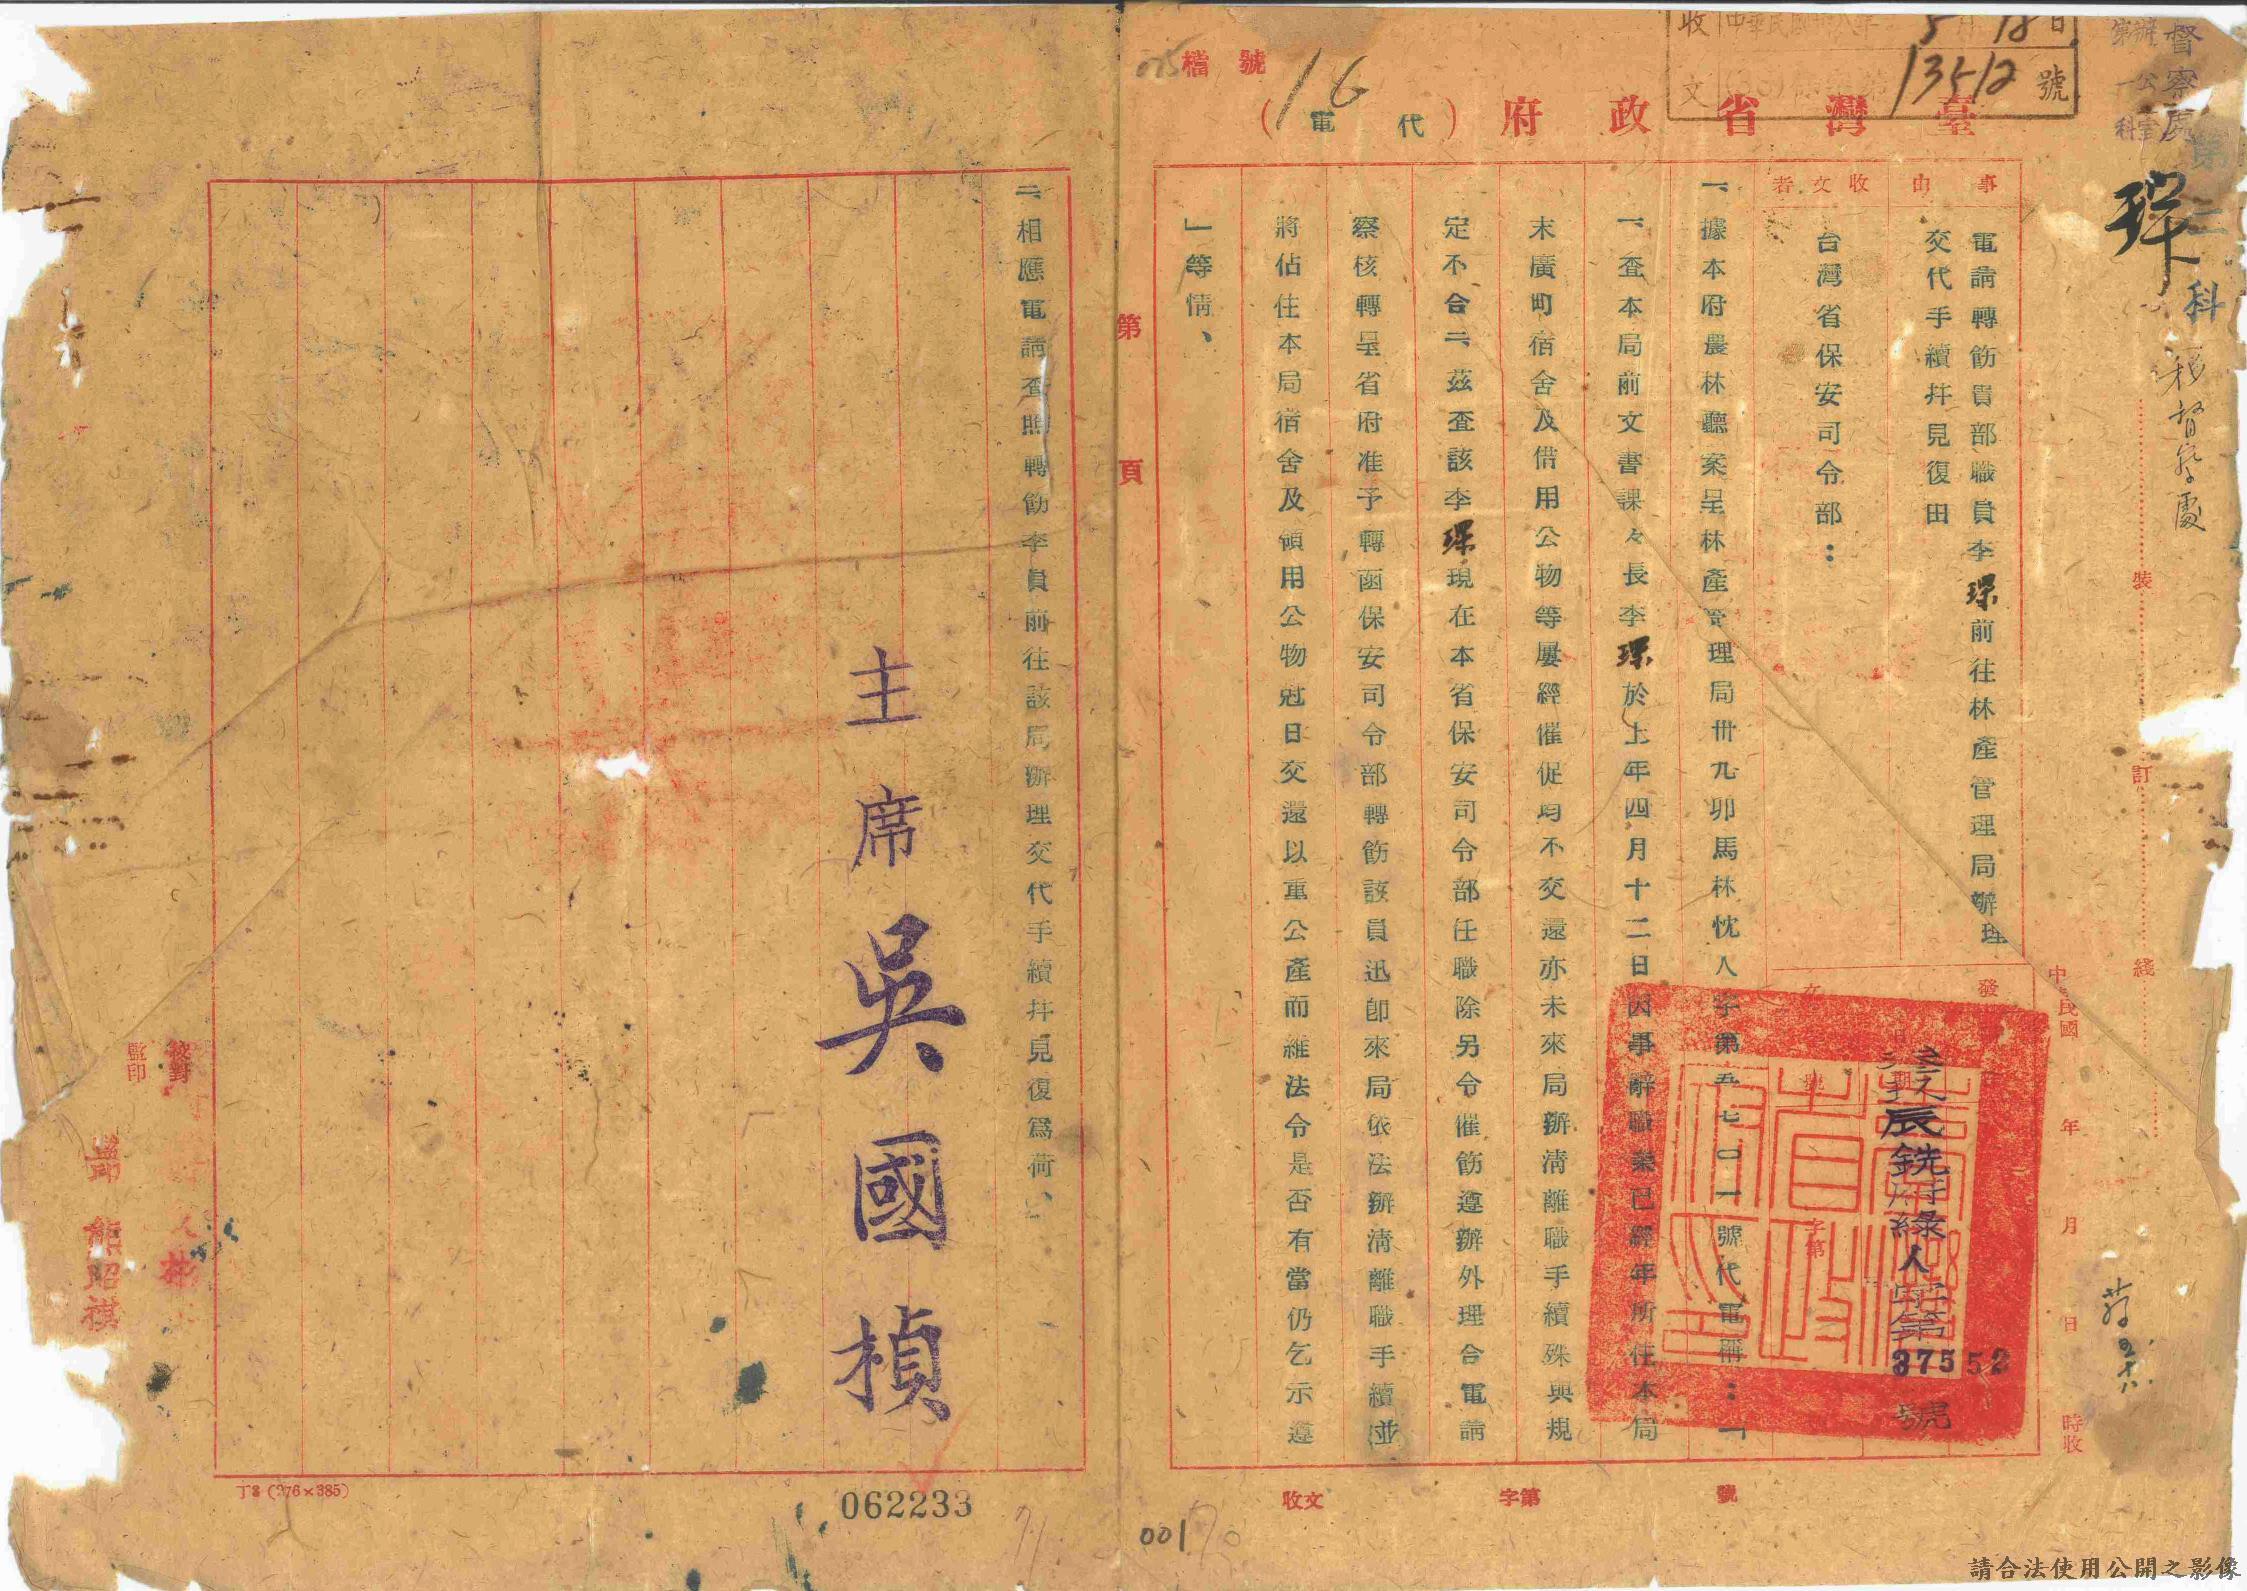 檔號
16
收文 5月18日
13512號
臺灣省政府(代電)
督察處
第二科
移督察處
事由
電請轉飭貴部職員李琛前往林產管理局辦理
交代手續幷見復由
收文者
台灣省保安司令部：
一、據本府農林廳案呈林產管理局卅九卯馬林忱人字第五七〇一號代電稱：「
一、查本局前文書課々長李琛於上年四月十二日因事辭職業已經年所住本局
末廣町宿舍及借用公物等屢經催促均不交還亦未來局辦清離職手續殊與規
定不合二、茲查該李琛現在本省保安司令部任職除另令催飭遵辦外理合電請
察核轉呈省府准予轉函保安司令部轉飭該員迅卽來局依法辦清離職手續並
將佔住本局宿舍及領用公物尅日交還以重公產而維法令是否有當仍乞示遵
」等情、
二、相應電請查照轉飭李員前往該局辦理交代手續幷見復爲荷、
主席 吳國楨
發文
辰銑府綠人字第37552號
中民國 年 月 日 時收
裝 訂 綫
第 頁
校對
監印
熊昭祺
丁3 (276×385)
062233
收文 字第 號
00170
71
請合法使用公開之影像